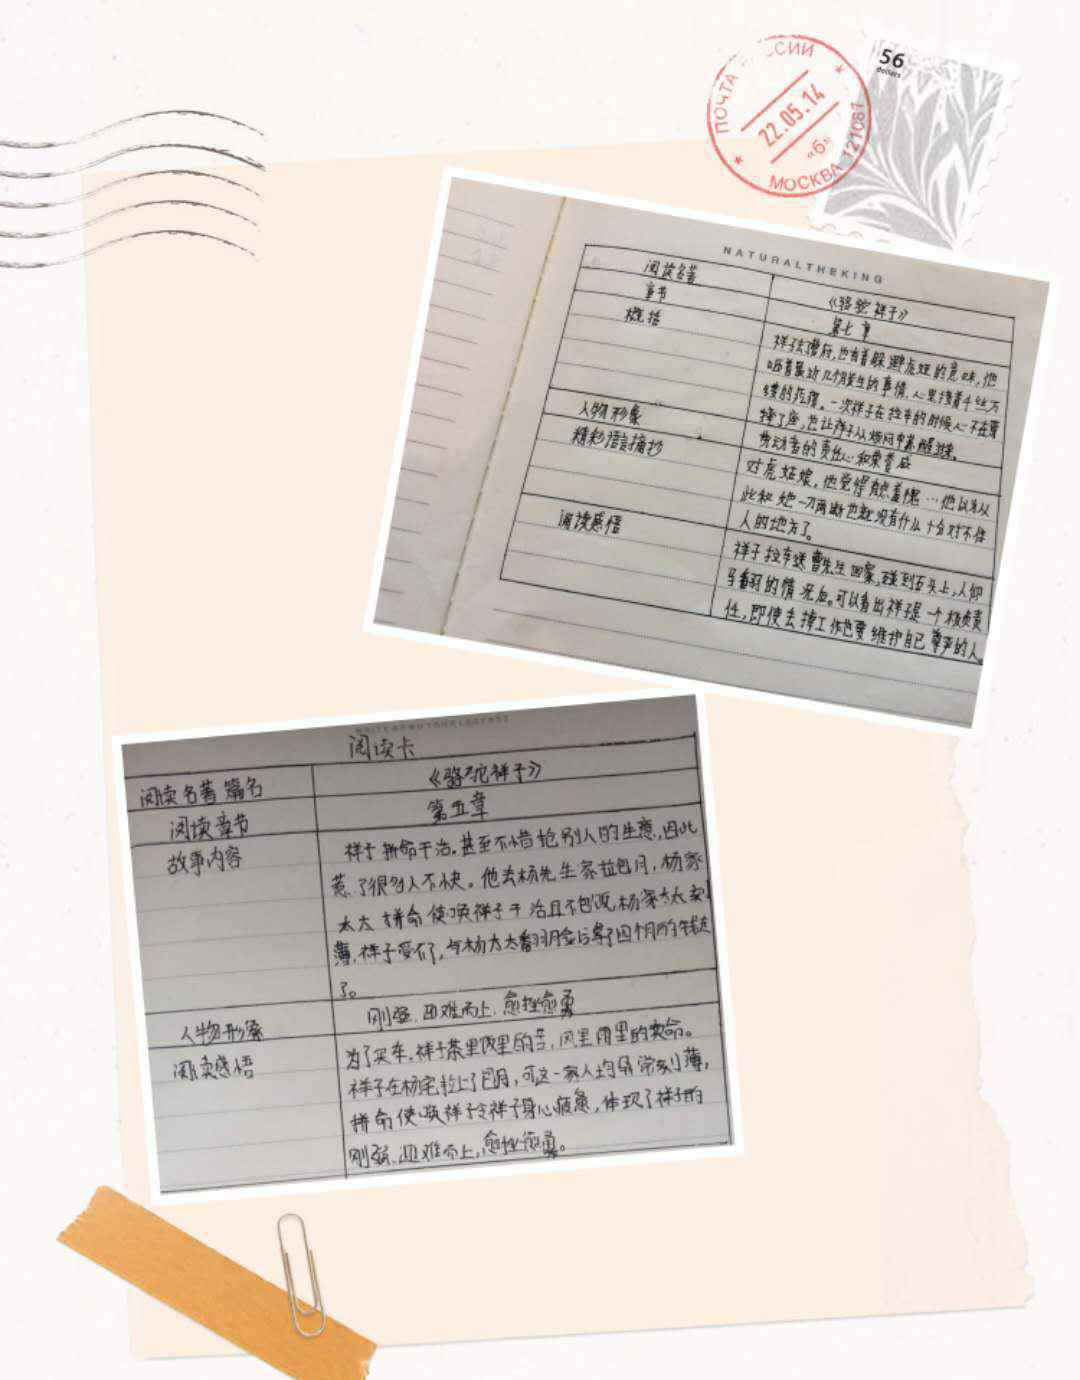 ПОЧТА
СИИ
22.05.14
«6»
МОСКВА 121087
56
dollars
NATURALTHEKING
阅读名著
《骆驼祥子》
章节
第七章
概括
祥子去曹府,也有着躲避虎妞的意味,他
着最近几个月发生的事情,心里
一次祥子在拉车的时候心不在焉
摔了座,也让祥子从烦闷中
人物形象
劳动者的责任心和荣誉感
精彩语言摘抄
对虎姑娘,他觉得有点羞愧…他以为从
此和她一刀两断也就没有什么十分对不住
人的地方了。
阅读感悟
祥子拉车送曹先生回家,碰到石头上,人仰
马翻的情况后。可以看出祥子是一个极负责
任,即使去掉工作也要维护自己尊严的人。
阅读卡
阅读名著篇名
《骆驼祥子》
阅读章节
第五章
故事内容
祥子拼命干活。甚至不惜抢别人的生意,因此
惹了很多人不快。他去杨先生家拉包月,杨家
太太拼命使唤祥子干活且不包饭,杨家太太刻
薄,祥子受不了,与杨太太翻脸后拿了四个月的钱走
了。
人物形象
刚强、迎难而上、愈挫愈勇
阅读感悟
为了买车,祥子茶里饭里的苦,风里雨里的卖命。
祥子在杨宅拉上了包月,可这一家人均异常刻薄,
拼命使唤祥子令祥子身心疲惫,体现了祥子的
刚强、迎难而上,愈挫愈勇。